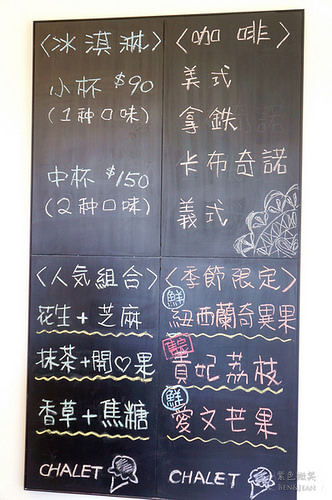 〈冰淇淋〉
小杯 $90
(1种口味)
中杯 $150
(2种口味)
〈咖啡〉
美式
拿鉄
卡布奇諾
義式
〈人気組合〉
花生+芝麻
抹茶+開♡果
香草+焦糖
CHALET
〈季節限定〉
鮮
紐西蘭奇異果
貴妃荔枝
鮮
愛文芒果
CHALET
紫色微笑
BEN&JEAN